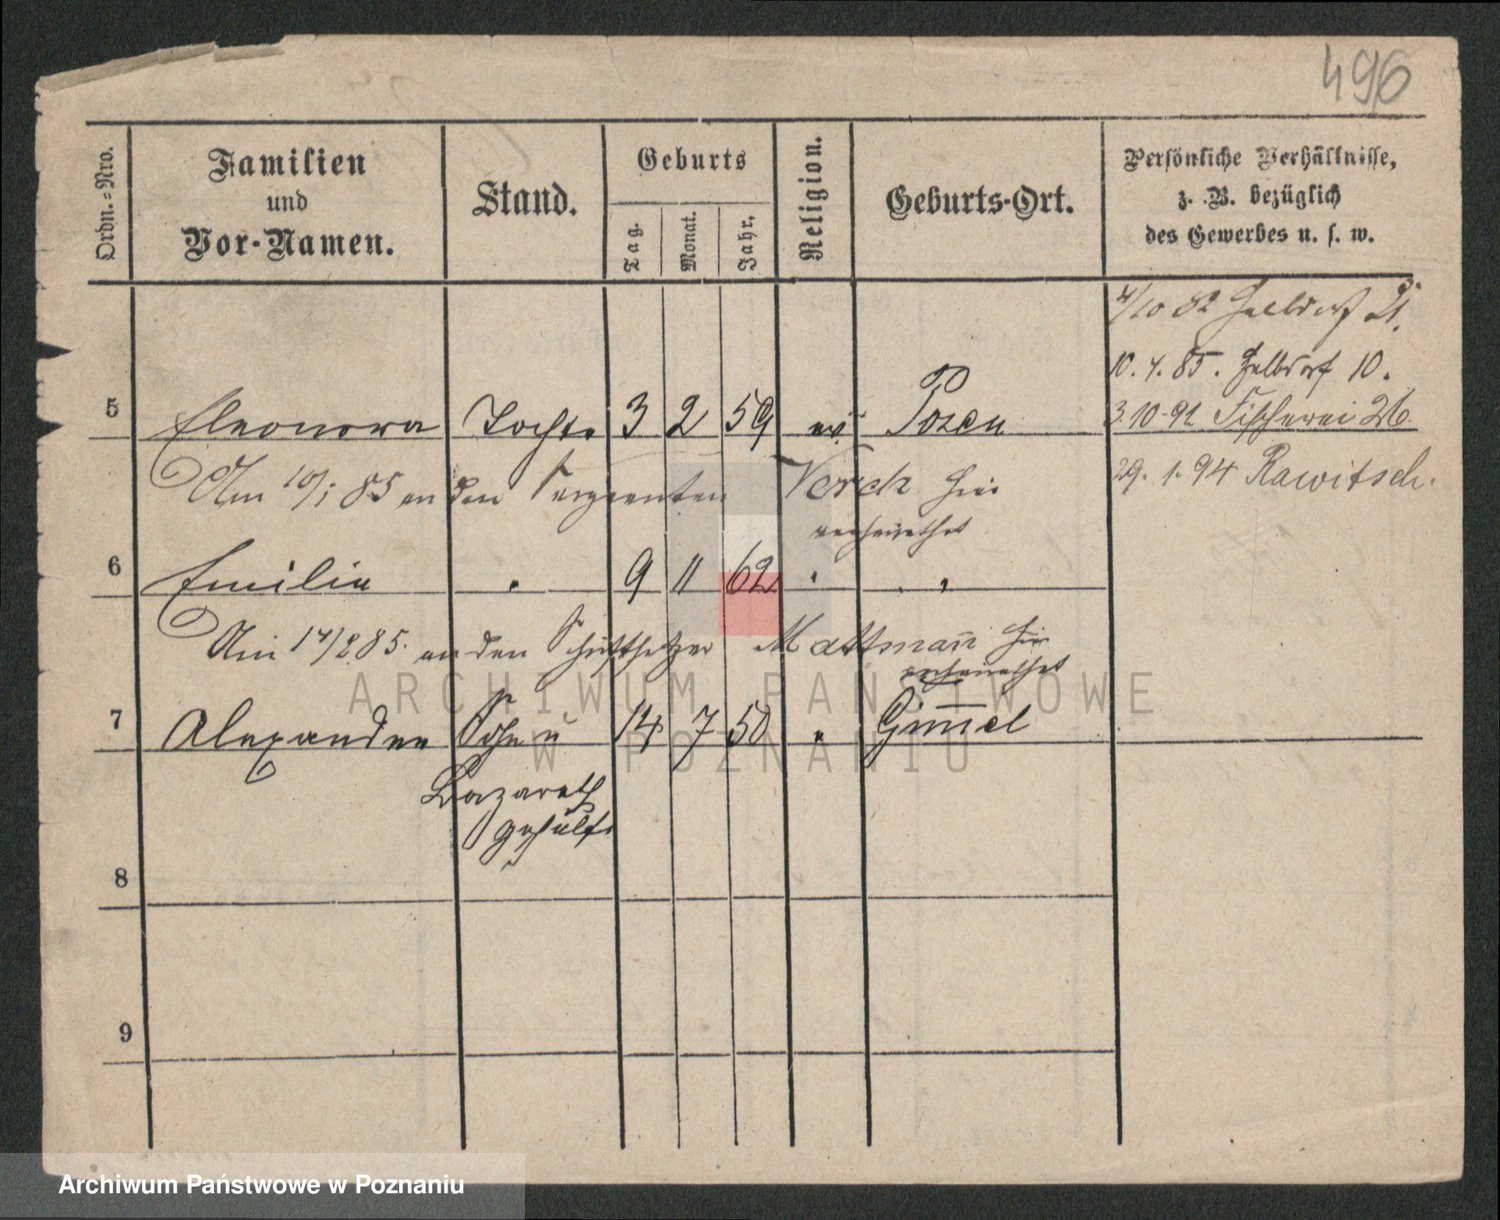 496
Ordn.-Nro.
Familien
und
Vor-Namen.
Stand.
Geburts
Tag.
Monat.
Jahr.
Religion.
Geburts-Ort.
Persönliche Verhältnisse,
z. B. bezüglich
des Gewerbes u. s. w.
4/10 82 Halbdorf 21.
10. 4. 85. Halbdorf 10.
5 Eleonora Tochter 3 2 59 ev Posen
3.10.91 Fischerei 26
Am 10/1 85 an den Sergeanten Verch hier
verheirathet
29. 1. 94 Rawitsch.
6 Emilie " 9 11 62 " "
Am 14/8 85. an den Schriftsetzer Mattmann hier
verheirathet
7 Alexander Sohn u 14 7 50 " Gimmel
Lazareth
gehülfe
8
9
ARCHIWUM PAŃSTWOWE
W POZNANIU
Archiwum Państwowe w Poznaniu